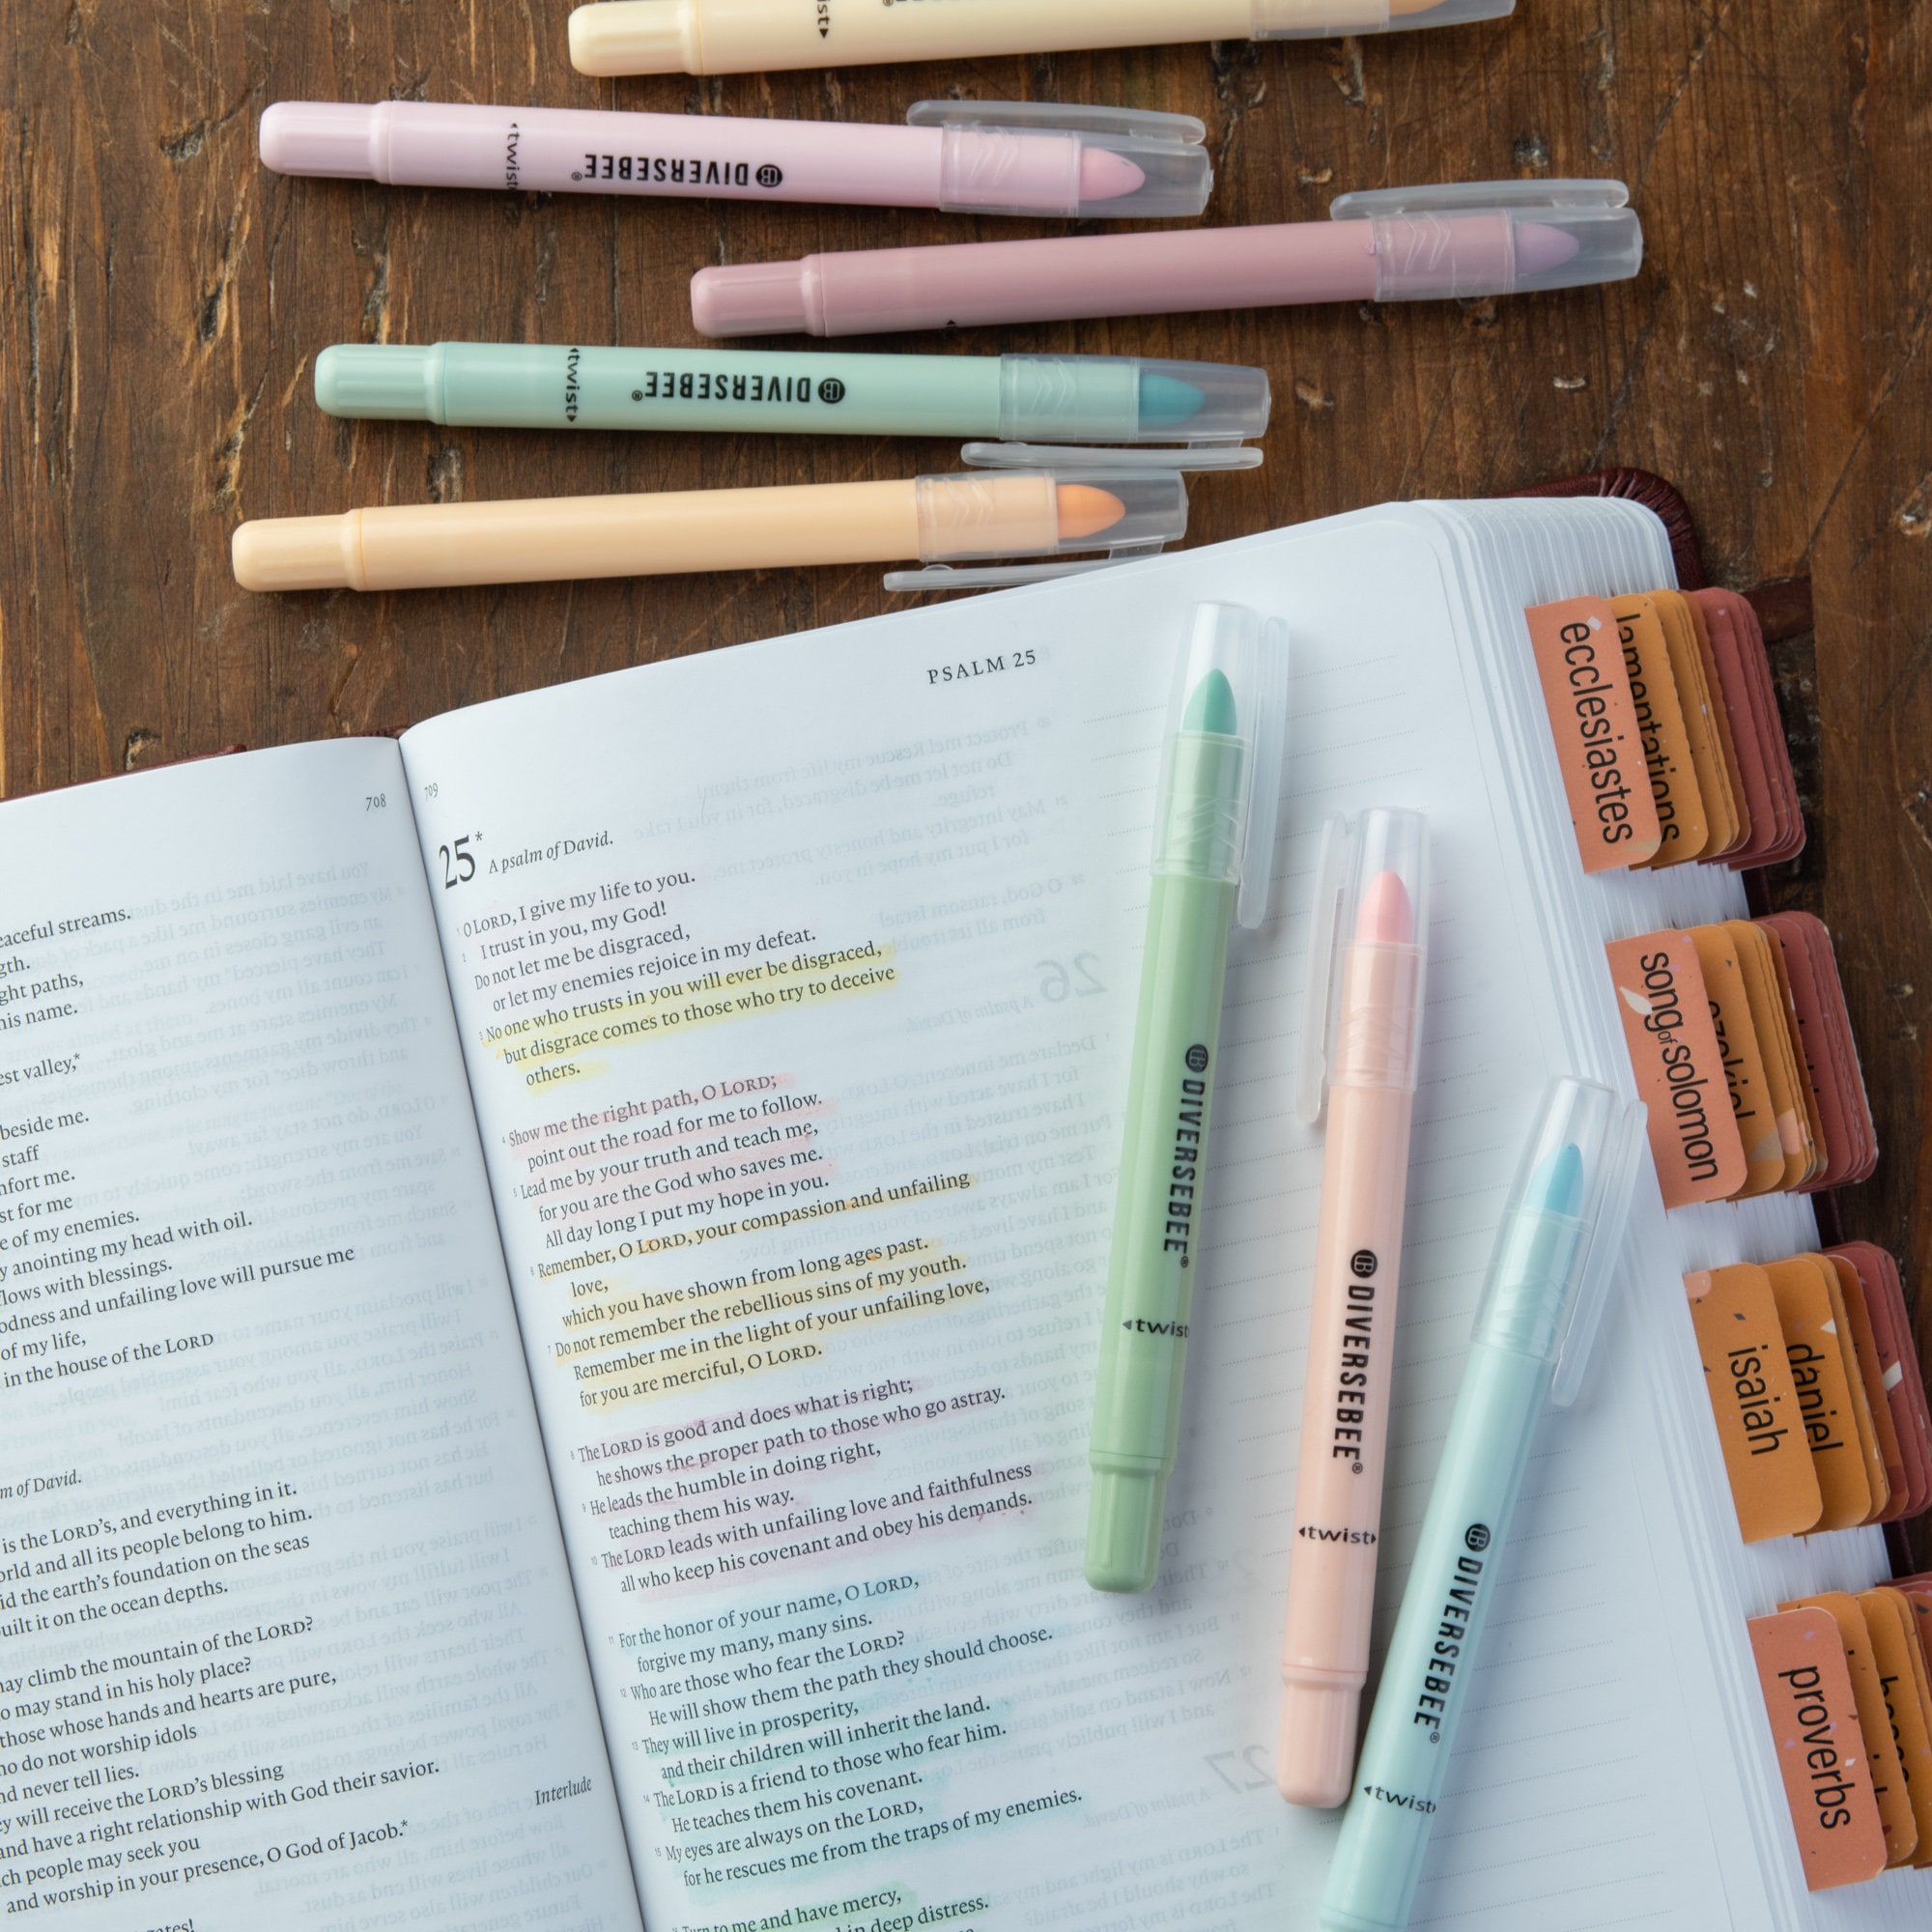 twist
DIVERSEBEE®
twist
DIVERSEBEE®
twist
PSALM 25
708
709
eaceful streams.
gth.
ght paths,
his name.
est valley,*
beside me.
staff
nfort me.
st for me
e of my enemies.
y anointing my head with oil.
lows with blessings.
odness and unfailing love will pursue me
of my life,
in the house of the LORD
m of David.
is the LORD's, and everything in it.
orld and all its people belong to him.
id the earth's foundation on the seas
uilt it on the ocean depths.
ay climb the mountain of the LORD?
o may stand in his holy place?
those whose hands and hearts are pure,
no do not worship idols
nd never tell lies.
ey will receive the LORD's blessing
and have a right relationship with God their savior.
ch people may seek you
and worship in your presence, O God of Jacob.*
Interlude
gates!
25* A psalm of David.
1 O LORD, I give my life to you.
2 I trust in you, my God!
Do not let me be disgraced,
or let my enemies rejoice in my defeat.
3 No one who trusts in you will ever be disgraced,
but disgrace comes to those who try to deceive
others.
4 Show me the right path, O LORD;
point out the road for me to follow.
5 Lead me by your truth and teach me,
for you are the God who saves me.
All day long I put my hope in you.
6 Remember, O LORD, your compassion and unfailing
love,
which you have shown from long ages past.
7 Do not remember the rebellious sins of my youth.
Remember me in the light of your unfailing love,
for you are merciful, O LORD.
8 The LORD is good and does what is right;
he shows the proper path to those who go astray.
9 He leads the humble in doing right,
teaching them his way.
10 The LORD leads with unfailing love and faithfulness
all who keep his covenant and obey his demands.
11 For the honor of your name, O LORD,
forgive my many, many sins.
12 Who are those who fear the LORD?
He will show them the path they should choose.
13 They will live in prosperity,
and their children will inherit the land.
14 The LORD is a friend to those who fear him.
He teaches them his covenant.
15 My eyes are always on the LORD,
for he rescues me from the traps of my enemies.
16 Turn to me and have mercy,
in deep distress.
DIVERSEBEE®
twist
DIVERSEBEE®
twist
DIVERSEBEE®
twist
ecclesiastes
lamentations
song of solomon
ezekiel
isaiah
daniel
proverbs